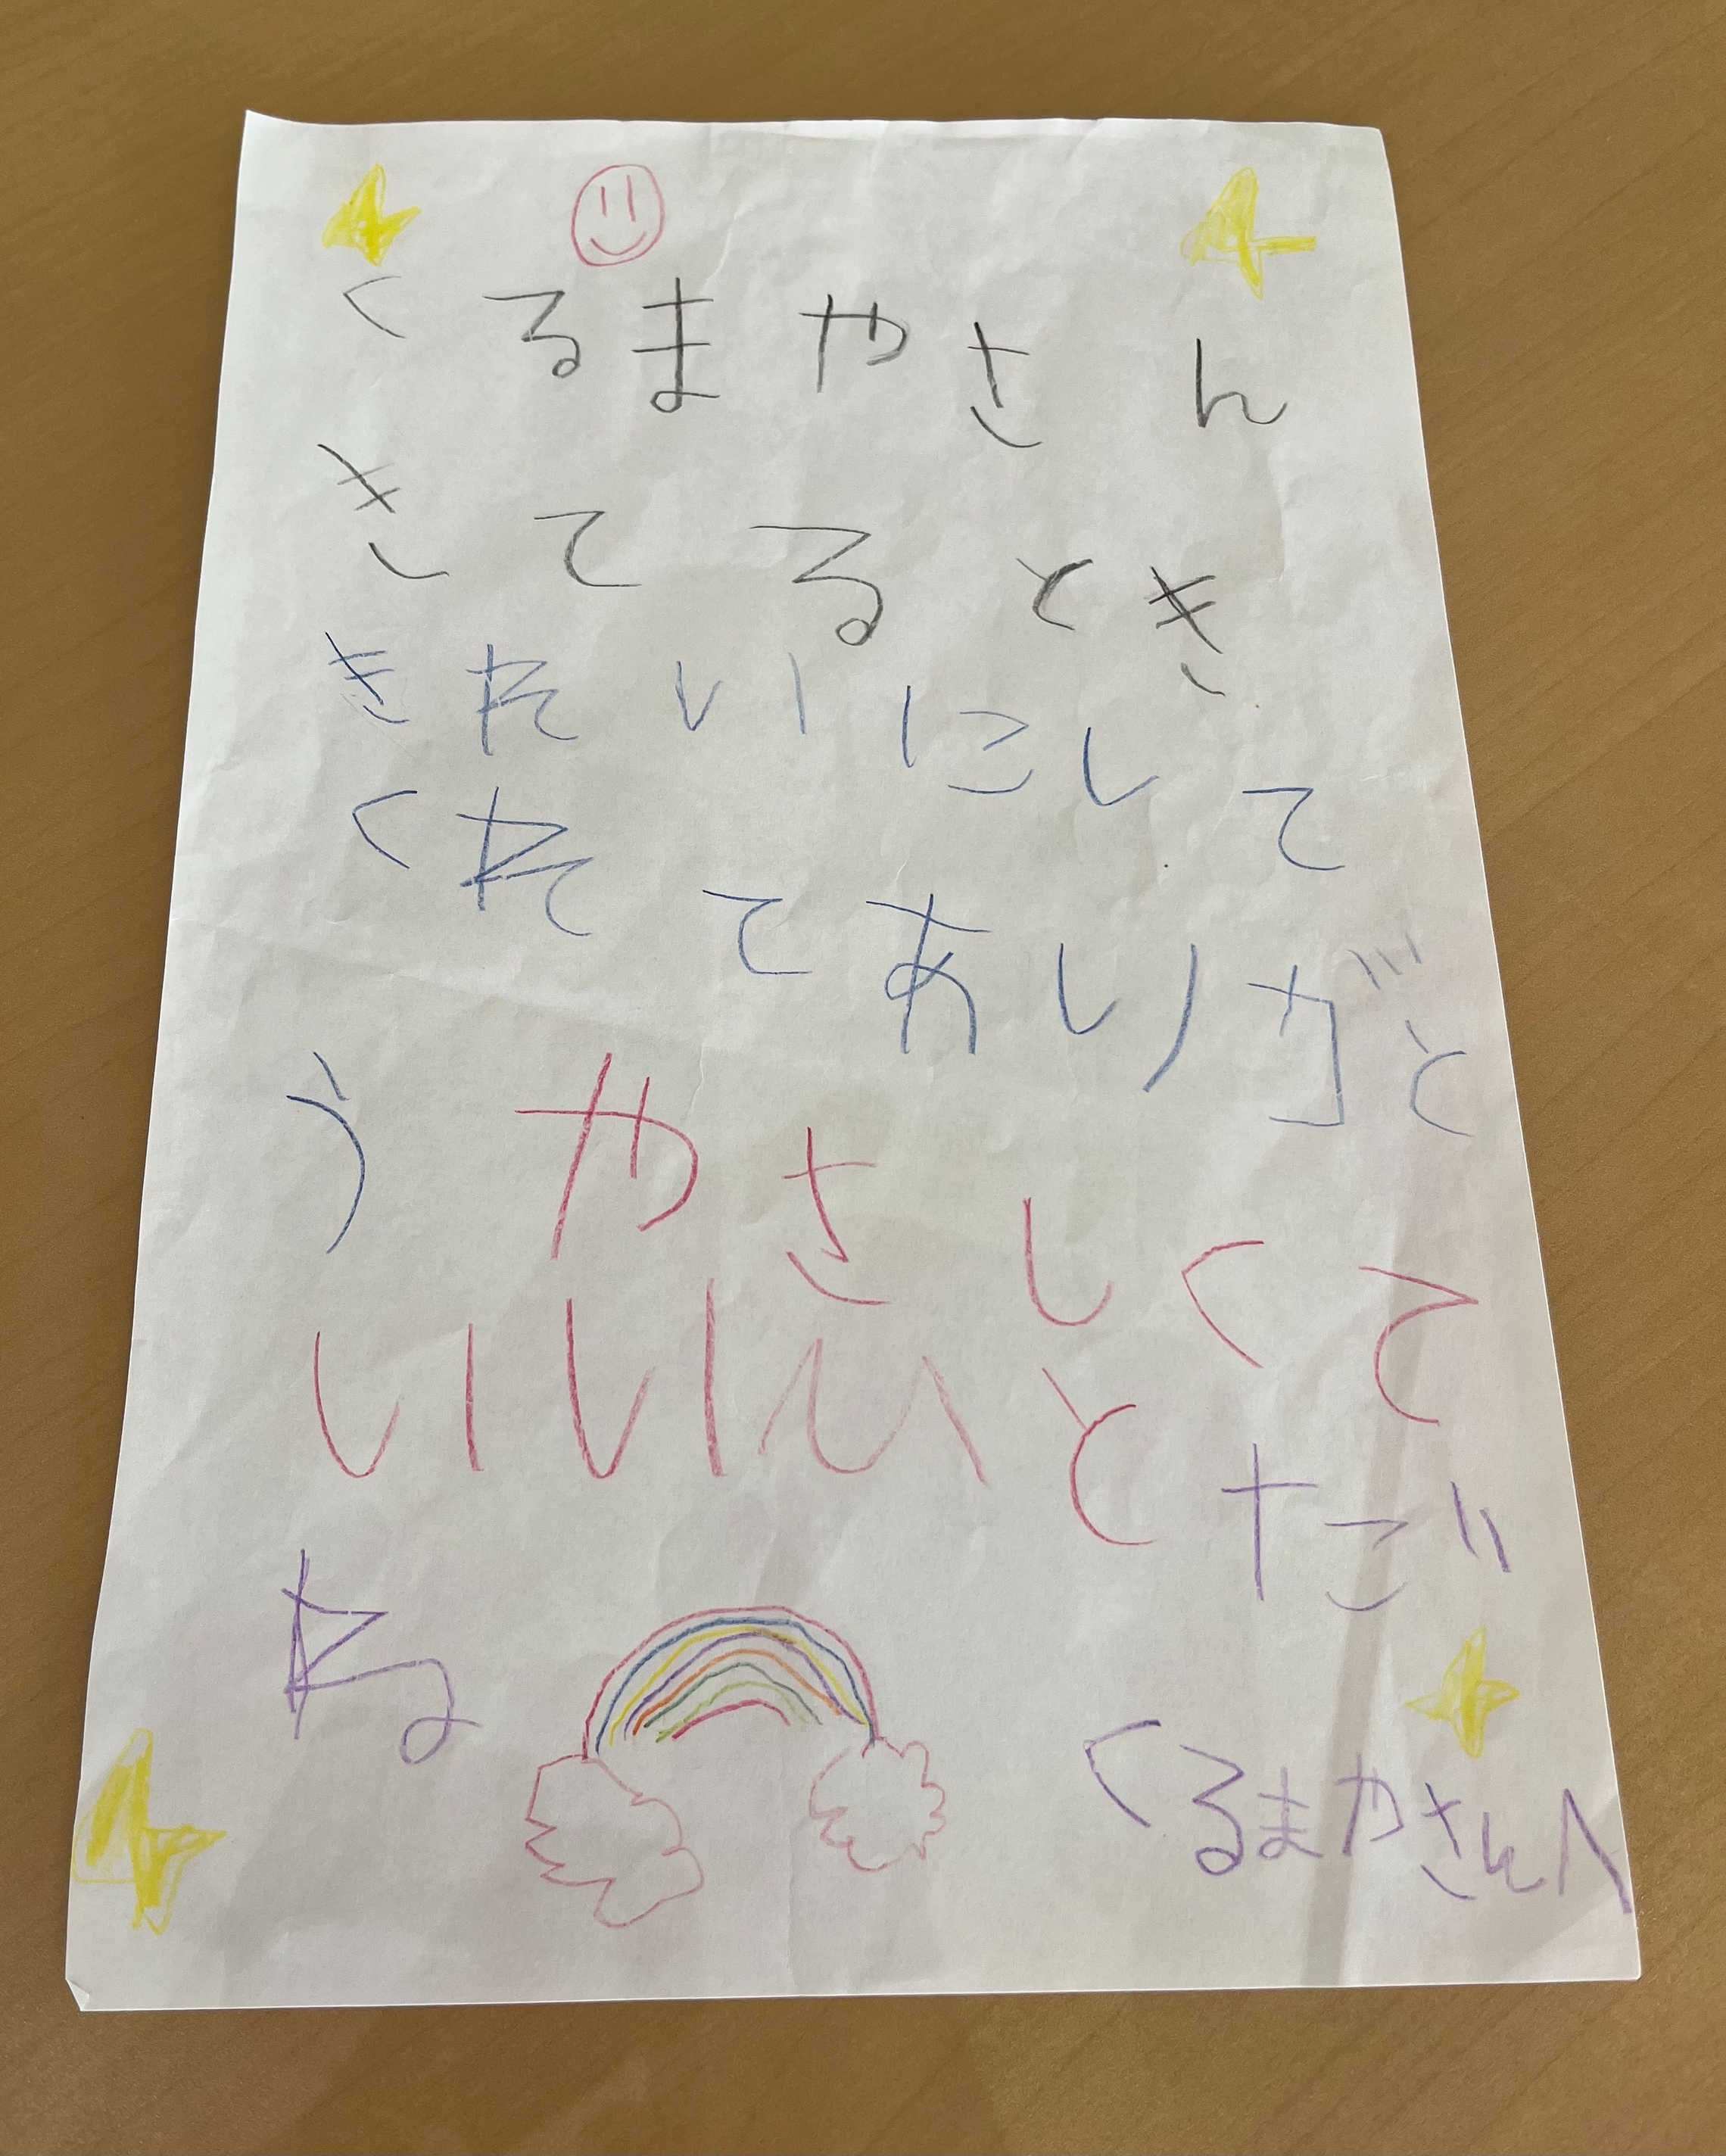 くるまやさん
きてるとき
きれいにして
くれてありがと
うやさしくて
いいひとだ
ね
くるまやさんへ